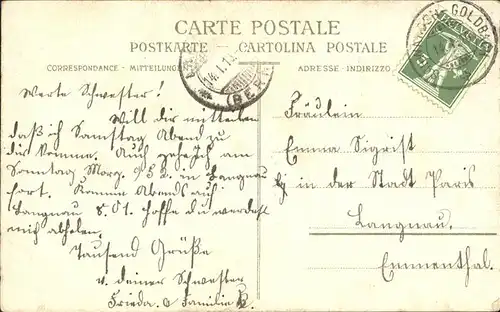 CARTE POSTALE
POSTKARTE - CARTOLINA POSTALE
CORRESPONDANCE - MITTEILUNG
ADRESSE - INDIRIZZO
GOLDBACH
HELVETIA
14.I.1
(BERN)
Werte Schwester!
Will dir mitteilen
daß ich Samstag Abend zu
dir komme. Auch gehe ich am
Sonntag Morg. 9 5 v. in Langnau
fort. Komme Abends auf
Langnau 8.01. hoffe du werdest
mich abholen.
Tausend Grüße
v. deiner Schwester
Frieda. & Familie
Fräulein
Emma Sigrist
bj in der Stadt Paris
Langnau.
Emmenthal.